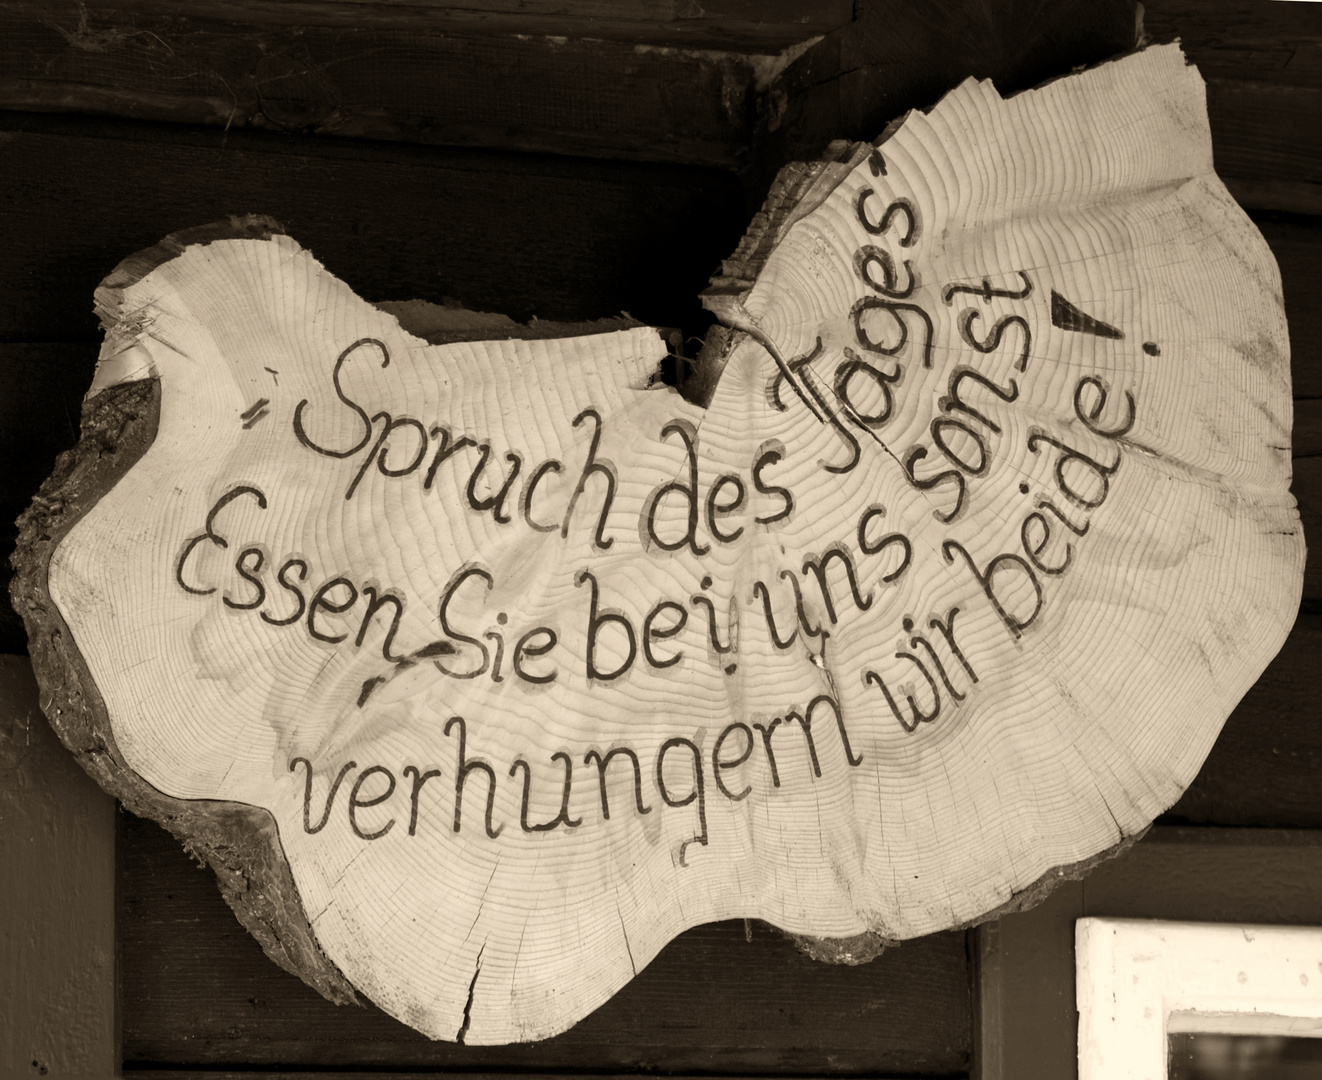 „Spruch des Tages"
Essen Sie bei uns sonst
verhungern wir beide!